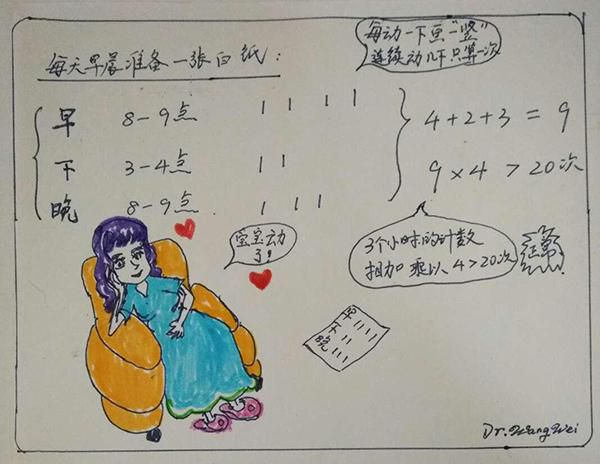 每天早晨准备一张白纸：
每动一下画“一竖”
连续动几下只算一次
早 8-9点 | | | |
下 3-4点 | |
晚 8-9点 | | |
4+2+3=9
9×4>20次
3个小时的计数
相加乘以4>20次
正常!
宝宝动
了!
早 ||||
下 ||
晚 |||
Dr.WangWei